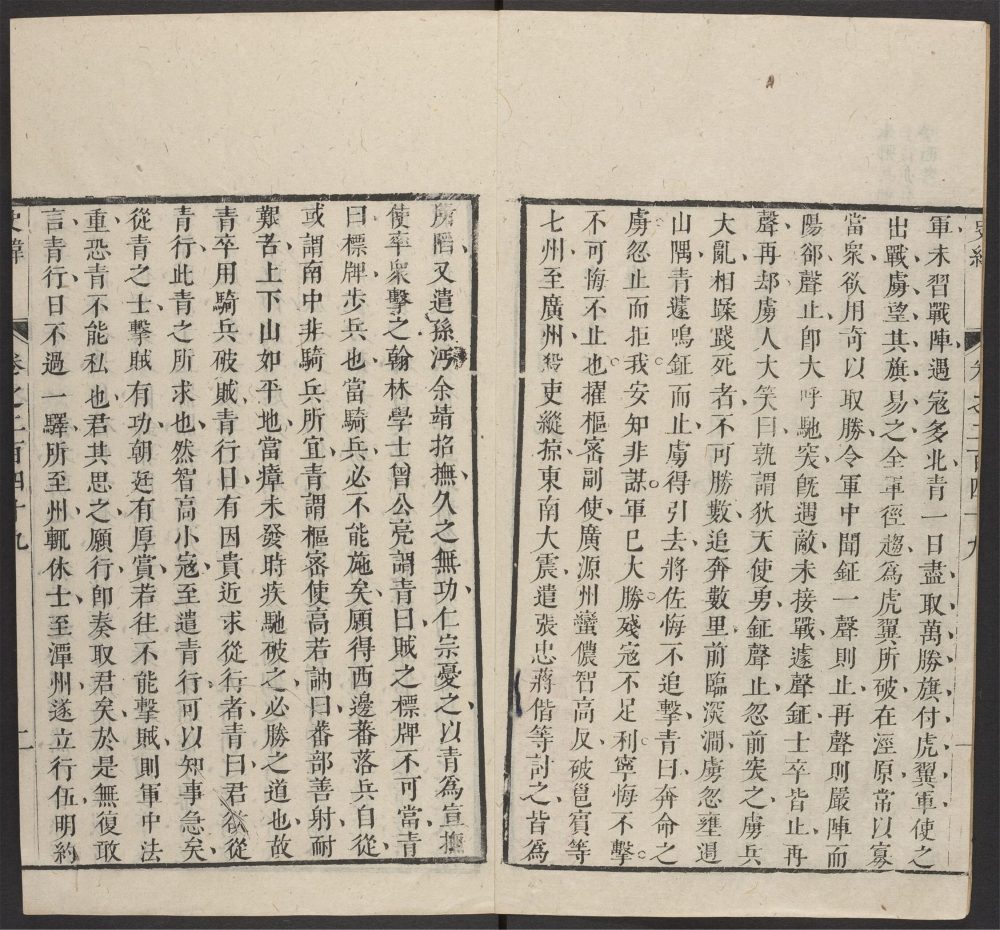 史緯 卷之二百四十九 一
軍未習戰陣遇寇多北青一日盡取萬勝旗付虎翼軍使之
出戰虜望其旗易之全軍徑趨為虎翼所破在涇原常以寡
當衆欲用奇以取勝令軍中聞鉦一聲則止再聲則嚴陣而
陽卻聲止卽大呼馳突旣遇敵未接戰遽聲鉦士卒皆止再
聲再却虜人大笑曰孰謂狄天使勇鉦聲止忽前突之虜兵
大亂相蹂踐死者不可勝數追奔數里前臨深澗虜忽壅遏
山隅青遽鳴鉦而止虜得引去將佐悔不追擊青曰奔命之
虜忽止而拒我安知非謀軍巳大勝殘寇不足利寧悔不擊
不可悔不止也擢樞密副使廣源州蠻儂智高反破邕賓等
七州至廣州殺吏縱掠東南大震遣張忠蔣偕等討之皆為
所陷又遣孫沔余靖招撫久之無功仁宗憂之以青為宣撫
使率衆擊之翰林學士曾公亮謂青曰賊之標牌不可當青
曰標牌步兵也當騎兵必不能施矣願得西邊蕃落兵自從
或謂南中非騎兵所宜青謂樞密使高若訥曰蕃部善射耐
艱苦上下山如平地當瘴未發時疾馳破之必勝之道也故
青卒用騎兵破賊青行日有因貴近求從行者青曰君欲從
青行此青之所求也然智高小寇至遣青行可以知事急矣
從青之士擊賊有功朝廷有厚賞若往不能擊賊則軍中法
重恐青不能私也君其思之願行卽奏取君矣於是無復敢
言青行日不過一驛所至州輒休士至潭州遂立行伍明約
史緯 卷之二百四十九 二